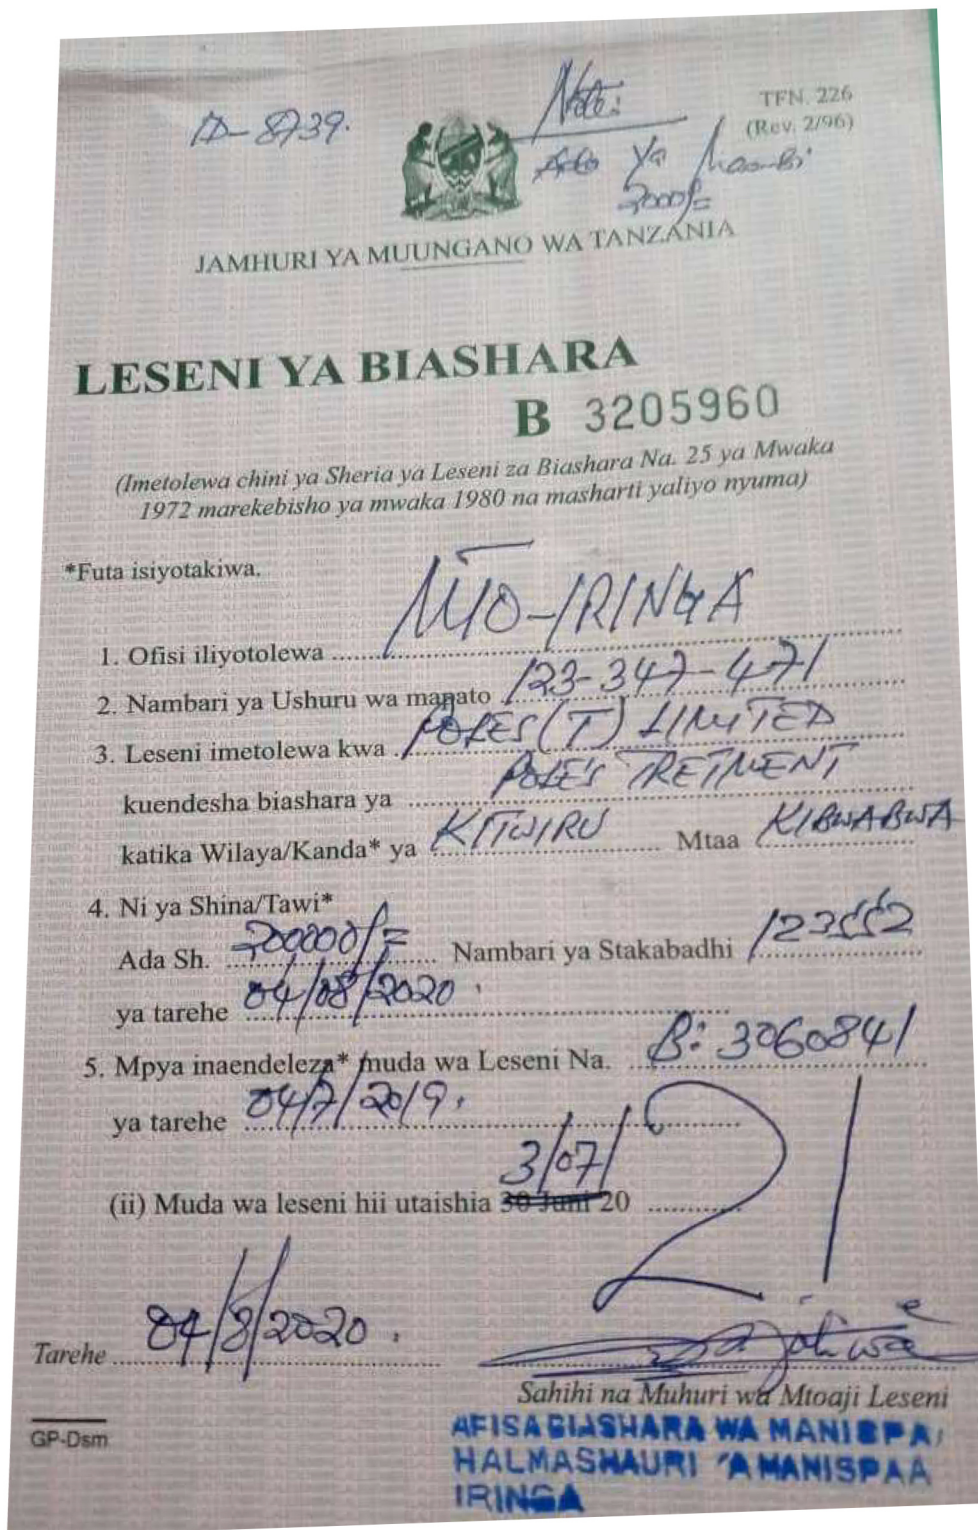 TFN. 226
(Rev. 2/96)
Note:
Ada ya maombi
2000/=
JAMHURI YA MUUNGANO WA TANZANIA
LESENI YA BIASHARA
B 3205960
(Imetolewa chini ya Sheria ya Leseni za Biashara Na. 25 ya Mwaka
1972 marekebisho ya mwaka 1980 na masharti yaliyo nyuma)
*Futa isiyotakiwa.
1. Ofisi iliyotolewa MTO-IRINGA
2. Nambari ya Ushuru wa mapato 123-347-471
3. Leseni imetolewa kwa POLES (T) LIMITED
kuendesha biashara ya POLES TRETMENT
katika Wilaya/Kanda* ya KITWIRU Mtaa KIBWABWA
4. Ni ya Shina/Tawi*
Ada Sh. 200000/= Nambari ya Stakabadhi
ya tarehe 04/08/2020
5. Mpya inaendeleza* muda wa Leseni Na. B: 3060841
ya tarehe 04/7/2019.
(ii) Muda wa leseni hii utaishia 3/07/ 30 Juni 20 21
Tarehe 04/8/2020.
Sahihi na Muhuri wa Mtoaji Leseni
GP-Dsm
AFISA BIASHARA WA MANISPAA
HALMASHAURI YA MANISPAA
IRINGA